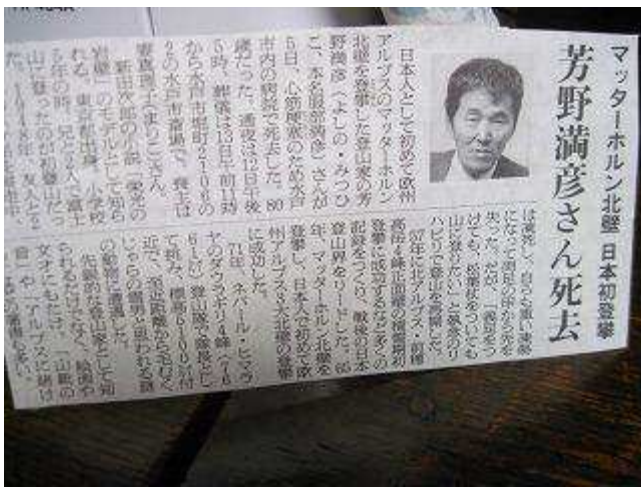 マッターホルン北壁 日本初登攀
芳野満彦さん死去
日本人として初めて欧州
アルプスのマッターホルン
北壁を登攀した登山家の芳
野満彦(よしの・みつひ
こ、本名服部満彦)さんが
5日、心筋梗塞のため水戸
市内の病院で死去した。80
歳だった。通夜は12日午後
5時、葬儀は13日午前11時
から水戸市堀町2106の
2の水戸市斎場で。喪主は
妻真理子(まりこ)さん。
新田次郎の小説「栄光の
岩壁」のモデルとして知ら
れる。東京都出身。小学校
5年の時、兄と2人で富士
山に登ったのが初登山だっ
た。1948年、友人と2
は凍死し、自らも重い凍傷
になって両足の甲から先を
失った。だが、「義足をつ
けても、松葉杖をついても
山に登りたい」と執念のリ
ハビリで登山を再開した。
57年に北アルプス・前穂
高岳4峰正面壁の積雪期初
登攀に成功するなど多くの
記録をつくり、戦後の日本
登山界をリードした。65
年、マッターホルン北壁を
登攀し、日本人で初めて欧
州アルプス3大北壁の登攀
に成功した。
71年、ネパール・ヒマラ
ヤのダウラギリ4峰(76
61㍍)登山隊で隊長とし
て挑み、標高5100㍍付
近で、至近距離から毛むく
じゃらの雪男と思われる謎
の動物に遭遇した。
先鋭的な登山家として知
られるだけでなく、絵画や
文才にもたけ、「山靴の
音」や「アルプスに賭け
の著書も多い。